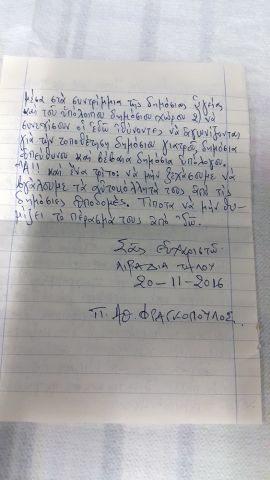 μέσα στα συντρίμμια της δημόσιας υγείας
και του υπόλοιπου δημόσιου χώρου 2) να
συνεχίσουν οι εδώ ιθύνοντες να αγωνίζονται
για την τοποθέτηση δημόσιου γιατρού, δημόσια
υπεύθυνου και βέβαια δημόσια υπόλογου.
Α!! και ένα τρίτο να μην ξεχάσουμε να
βγάλουμε τα αυτοκόλλητά τους από τις
δημόσιες υποδομές. Τίποτα να μην θυ-
μίζει το πέρασμά τους από εδώ.
Σας ευχαριστώ
ΛΙΒΑΔΙΑ ΤΗΛΟΥ
20-11-2016
Π. ΑΘ. ΦΡΑΓΚΟΠΟΥΛΟΣ.